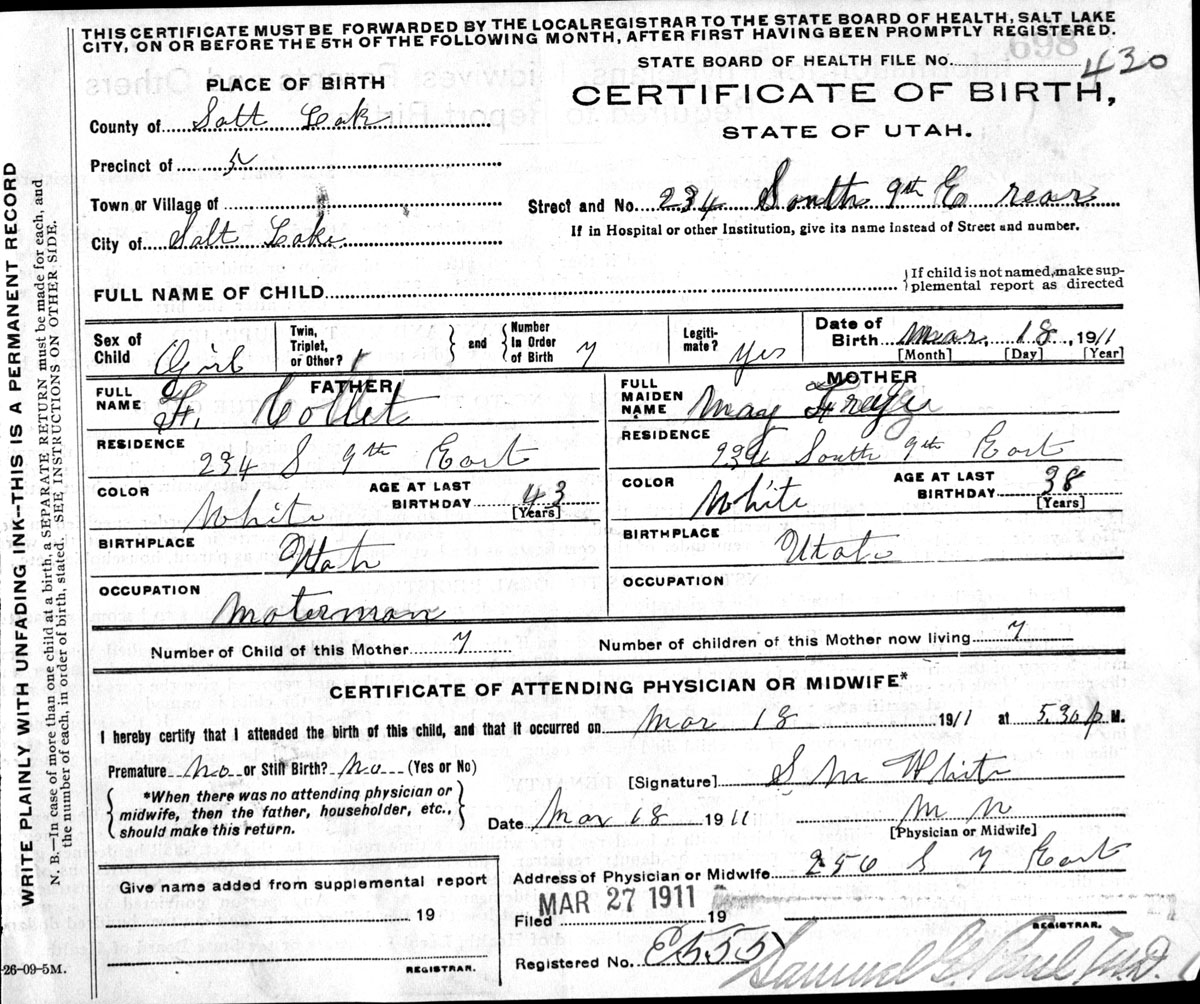 THIS CERTIFICATE MUST BE FORWARDED BY THE LOCAL REGISTRAR TO THE STATE BOARD OF HEALTH, SALT LAKE
CITY, ON OR BEFORE THE 5TH OF THE FOLLOWING MONTH, AFTER FIRST HAVING BEEN PROMPTLY REGISTERED.
STATE BOARD OF HEALTH FILE No. 430
PLACE OF BIRTH
CERTIFICATE OF BIRTH,
STATE OF UTAH.
County of Salt Lake
Precinct of 5
Town or Village of
Street and No. 234 South 9th E rear
If in Hospital or other Institution, give its name instead of Street and number.
City of Salt Lake
FULL NAME OF CHILD
If child is not named, make sup-
plemental report as directed
Sex of Child Girl
Twin, Triplet, or Other? 1
and
Number In Order of Birth 7
Legiti- mate? Yes
Date of Birth Mar. 18, 1911
[Month] [Day] [Year]
FATHER
FULL NAME F. Collet
MOTHER
FULL MAIDEN NAME May
RESIDENCE 234 S 9th East
RESIDENCE 234 South 9th East
COLOR White
AGE AT LAST BIRTHDAY 43
[Years]
COLOR White
AGE AT LAST BIRTHDAY 38
[Years]
BIRTHPLACE Utah
BIRTHPLACE Utah
OCCUPATION Moterman
OCCUPATION
Number of Child of this Mother 7
Number of children of this Mother now living 7
CERTIFICATE OF ATTENDING PHYSICIAN OR MIDWIFE*
I hereby certify that I attended the birth of this child, and that it occurred on Mar 18 1911 at 5.30 p M.
Premature No or Still Birth? No (Yes or No)
[Signature] S M White
*When there was no attending physician or
midwife, then the father, householder, etc.,
should make this return.
Date Mar 18 1911
[Physician or Midwife]
Address of Physician or Midwife 256 S 7 East
Give name added from supplemental report
19
REGISTRAR.
Filed MAR 27 1911 19
REGISTRAR.
Registered No. E555
Samuel G. Paul M.D.
26-09-5M.
WRITE PLAINLY WITH UNFADING INK--THIS IS A PERMANENT RECORD
N. B.—In case of more than one child at a birth, a SEPARATE RETURN must be made for each, and
the number of each, in order of birth, stated. SEE INSTRUCTIONS ON OTHER SIDE.